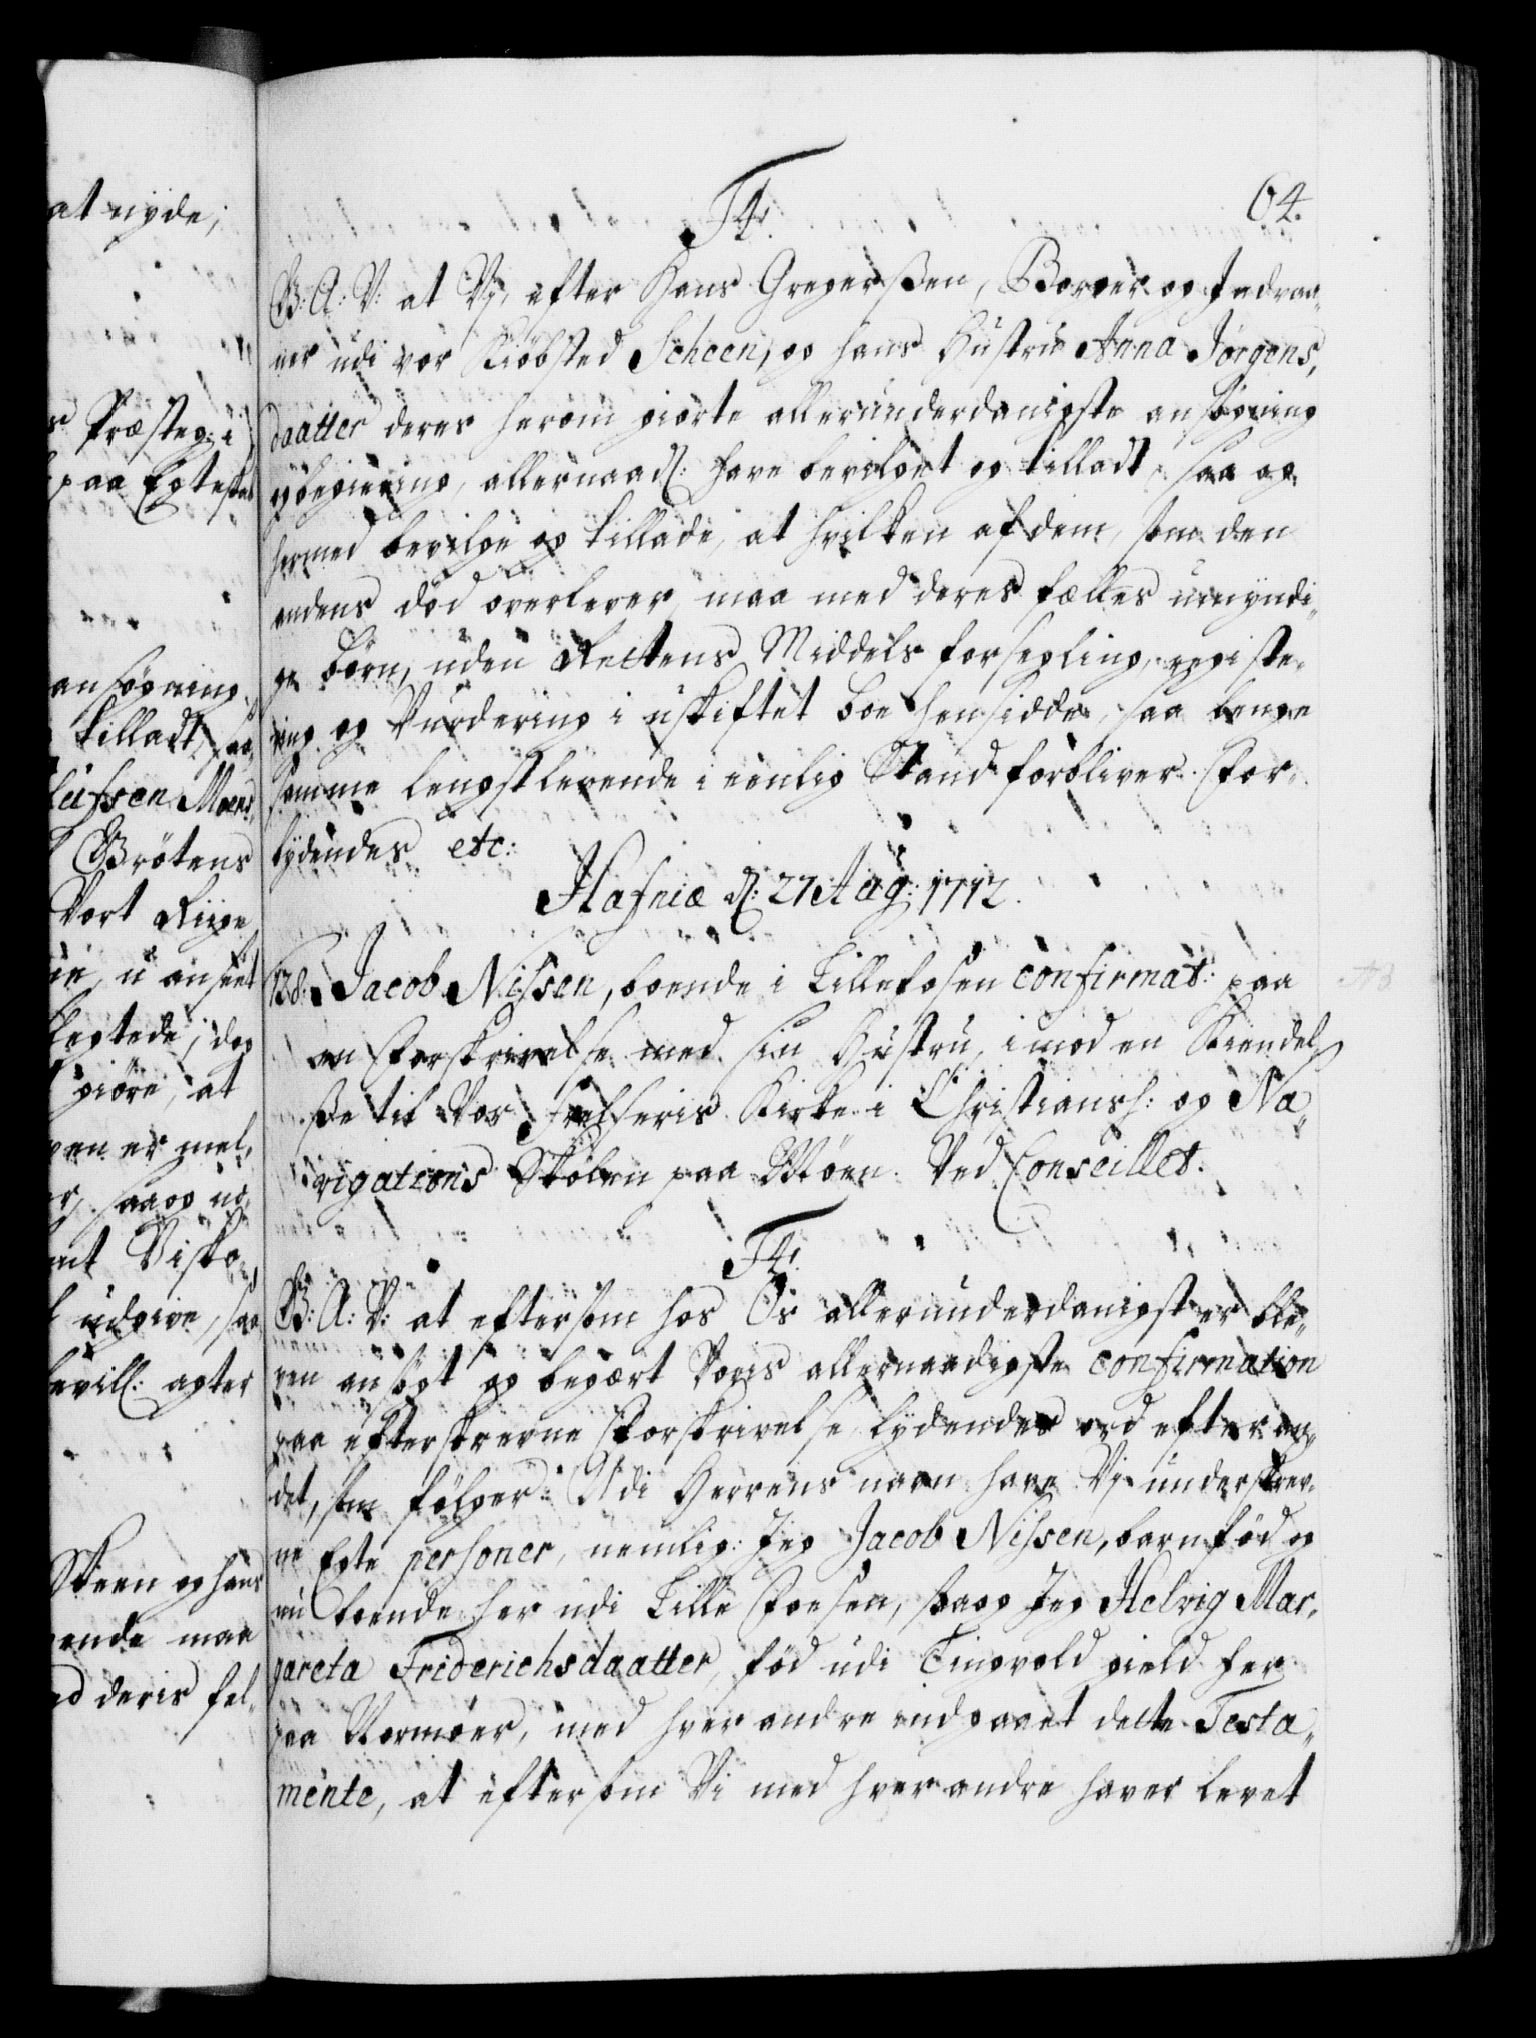 at nyde;
Præsteg: i
paa Egtestand
ansøgning
tilladt, saa
leifsen Moens
Grötens
Vort Riige
u anseet
dog
giöre, at
er mel,
saa og
udgive, saa
bevill: agter
Skeen og hans
maa
deris fel-
F4.
64.
G: A: V: at Vj, efter Hans Gregerssen, Borger og Indvaa-
ner udi vor Kiöbsted Scheen, og hans Hustru Anna Jörgens,
daatter deres herom giorte allerunderdanigste ansögning
og begiering, allernaad: have bevilget og tilladt, saa og
hermed bevilge og tillade, at hvilken af dem, som den
andens död overlever, maa med deres fælles umyndi-
ge börn, uden Rettens Middels forsegling, registe-
ring og Vurdering i uskiftet boe hensidde, saa lenge
samme lengstlevende i eenlig Stand forbliver. For-
bydendes etc:
Hafniæ d: 27 Aug: 1712.
138. Jacob Nissen, boende i Lillefosen confirmat: paa
en Forskrivelse med sin Hustru, imod en Kiendel-
se til Vor Frelseris Kirke i Christiansh: og Na-
vigations Skolen paa Möen. Ved Conseillet.
F4.
G: A: V: at eftersom hos Os allerunderdanigst er ble-
ven ansögt og begært Voris allernaadigste confirmation
paa efterskrevne Forskrivelse, lydendes ord efter an-
det, som fölger: Udi Herrens navn have Vj underskrev-
ne Egte personer, nemlig: Jeg Jacob Nissen, barnföd og
nu boende her udi Lille Foesen, saa og Jeg Helvig Mar-
gareta Friderichsdaatter, föd udi Tingvold gield her
paa Normöer, med hver andre indgaaet dette Testa-
mente, at eftersom Vi med hver andre haver levet